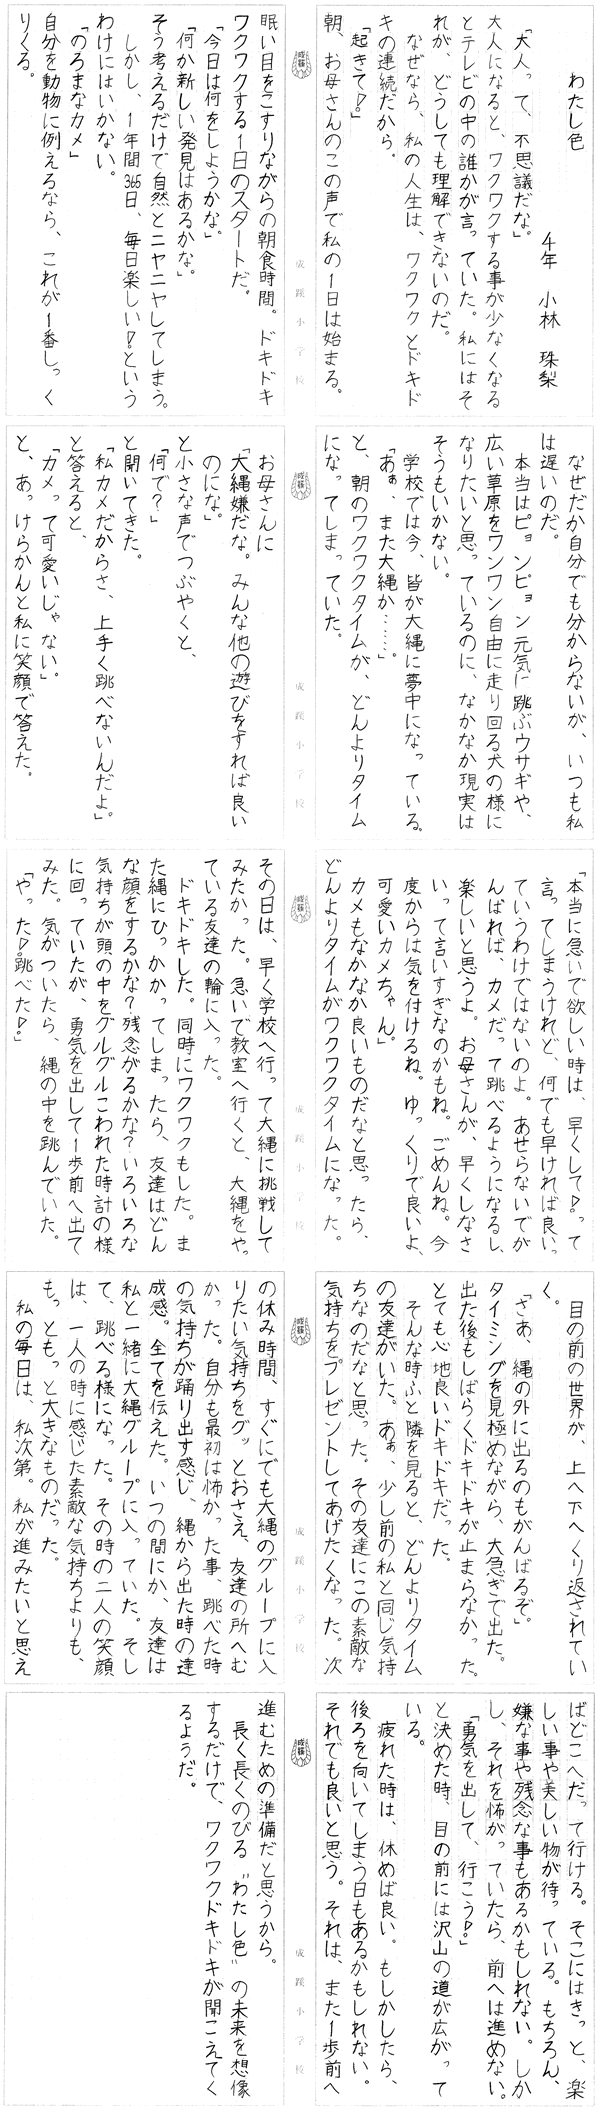 わたし色
4年 小林 珠梨
「大人って、不思議だな。」
大人になると、ワクワクする事が少なくなる
とテレビの中の誰かが言っていた。私にはそ
れが、どうしても理解できないのだ。
なぜなら、私の人生は、ワクワクとドキド
キの連続だから。
「起きて!」
朝、お母さんのこの声で私の1日は始まる。
眠い目をこすりながらの朝食時間。ドキドキ
ワクワクする1日のスタートだ。
「今日は何をしようかな。」
「何か新しい発見はあるかな。」
そう考えるだけで自然とニヤニヤしてしまう。
しかし、1年間365日、毎日楽しい!という
わけにはいかない。
「のろまなカメ」
自分を動物に例えるなら、これが1番しっく
りくる。
なぜだか自分でも分からないが、いつも私
は遅いのだ。
本当はピョンピョン元気に跳ぶウサギや、
広い草原をワンワン自由に走り回る犬の様に
なりたいと思っているのに、なかなか現実は
そうもいかない。
学校では今、皆が大縄に夢中になっている。
「あぁ、また大縄か……。」
と、朝のワクワクタイムが、どんよりタイム
になってしまっていた。
お母さんに
「大縄嫌だな。みんな他の遊びをすれば良い
のにな。」
と小さな声でつぶやくと、
「何で?」
と聞いてきた。
「私カメだからさ、上手く跳べないんだよ。」
と答えると、
「カメって可愛いじゃない。」
と、あっけらかんと私に笑顔で答えた。
「本当に急いで欲しい時は、早くして!って
言ってしまうけれど、何でも早ければ良いっ
ていうわけではないのよ。あせらないでが
んばれば、カメだって跳べるようになるし、
楽しいと思うよ。お母さんが、早くしなさ
いって言いすぎなのかもね。ごめんね。今
度からは気を付けるね。ゆっくりで良いよ、
可愛いカメちゃん。」
カメもなかなか良いものだなと思ったら、
どんよりタイムがワクワクタイムになった。
その日は、早く学校へ行って大縄に挑戦して
みたかった。急いで教室へ行くと、大縄をやっ
ている友達の輪に入った。
ドキドキした。同時にワクワクもした。ま
た縄にひっかかってしまったら、友達はどん
な顔をするかな?残念がるかな?いろいろな
気持ちが頭の中をグルグルこわれた時計の様
に回っていたが、勇気を出して1歩前へ出て
みた。気がついたら、縄の中を跳んでいた。
「やった!跳べた!」
目の前の世界が、上へ下へくり返されてい
く。
「さあ、縄の外に出るのもがんばるぞ。」
タイミングを見極めながら、大急ぎで出た。
出た後もしばらくドキドキが止まらなかった。
とても心地良いドキドキだった。
そんな時ふと隣を見ると、どんよりタイム
の友達がいた。あぁ、少し前の私と同じ気持
ちなのだなと思った。その友達にこの素敵な
気持ちをプレゼントしてあげたくなった。次
の休み時間、すぐにでも大縄のグループに入
りたい気持ちをグッとおさえ、友達の所へむ
かった。自分も最初は怖かった事、跳べた時
の気持ちが踊り出す感じ、縄から出た時の達
成感。全てを伝えた。いつの間にか、友達は
私と一緒に大縄グループに入っていた。そし
て、跳べる様になった。その時の二人の笑顔
は、一人の時に感じた素敵な気持ちよりも、
もっともっと大きなものだった。
私の毎日は、私次第。私が進みたいと思え
ばどこへだって行ける。そこにはきっと、楽
しい事や美しい物が待っている。もちろん、
嫌な事や残念な事もあるかもしれない。しか
し、それを怖がっていたら、前へは進めない。
「勇気を出して、行こう!」
と決めた時、目の前には沢山の道が広がって
いる。
疲れた時は、休めば良い。もしかしたら、
後ろを向いてしまう日もあるかもしれない。
それでも良いと思う。それは、また1歩前へ
進むための準備だと思うから。
長く長くのびる〝わたし色〟の未来を想像
するだけで、ワクワクドキドキが聞こえてく
るようだ。
成蹊小学校
成蹊小学校
成蹊小学校
成蹊小学校
成蹊小学校